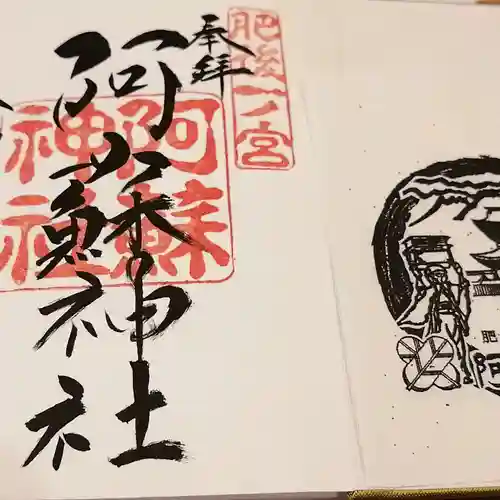 奉拝
肥後一ノ宮
阿蘇神社
阿蘇
神社
肥
阿